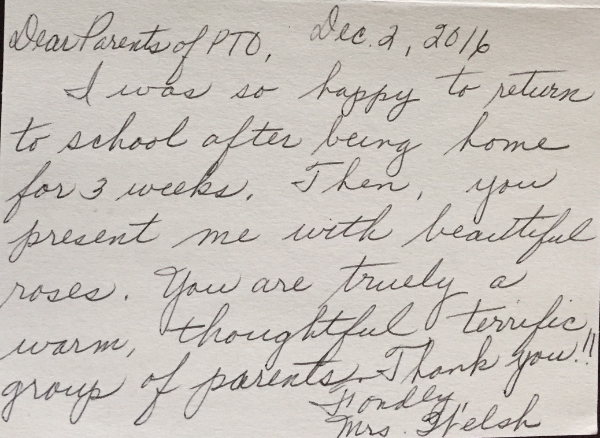 Dear Parents of PTO, Dec. 2, 2016
I was so happy to return
to school after being home
for 3 weeks. Then, you
present me with beautiful
roses. You are truely a
warm, thoughtful terrific
group of parents. Thank you!!
Fondly,
Mrs. Welsh